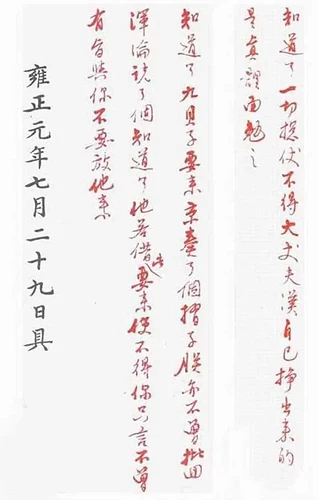 知道了一切揔仗不得大丈夫漢自己掙出来的
是真體面勉之
知道了九貝子要来京奏了個摺子朕亦不曾批回
渾淪説了個知道了他若借此要来使不得你只言不曾
有旨與你不要放他来
雍正元年七月二十九日具